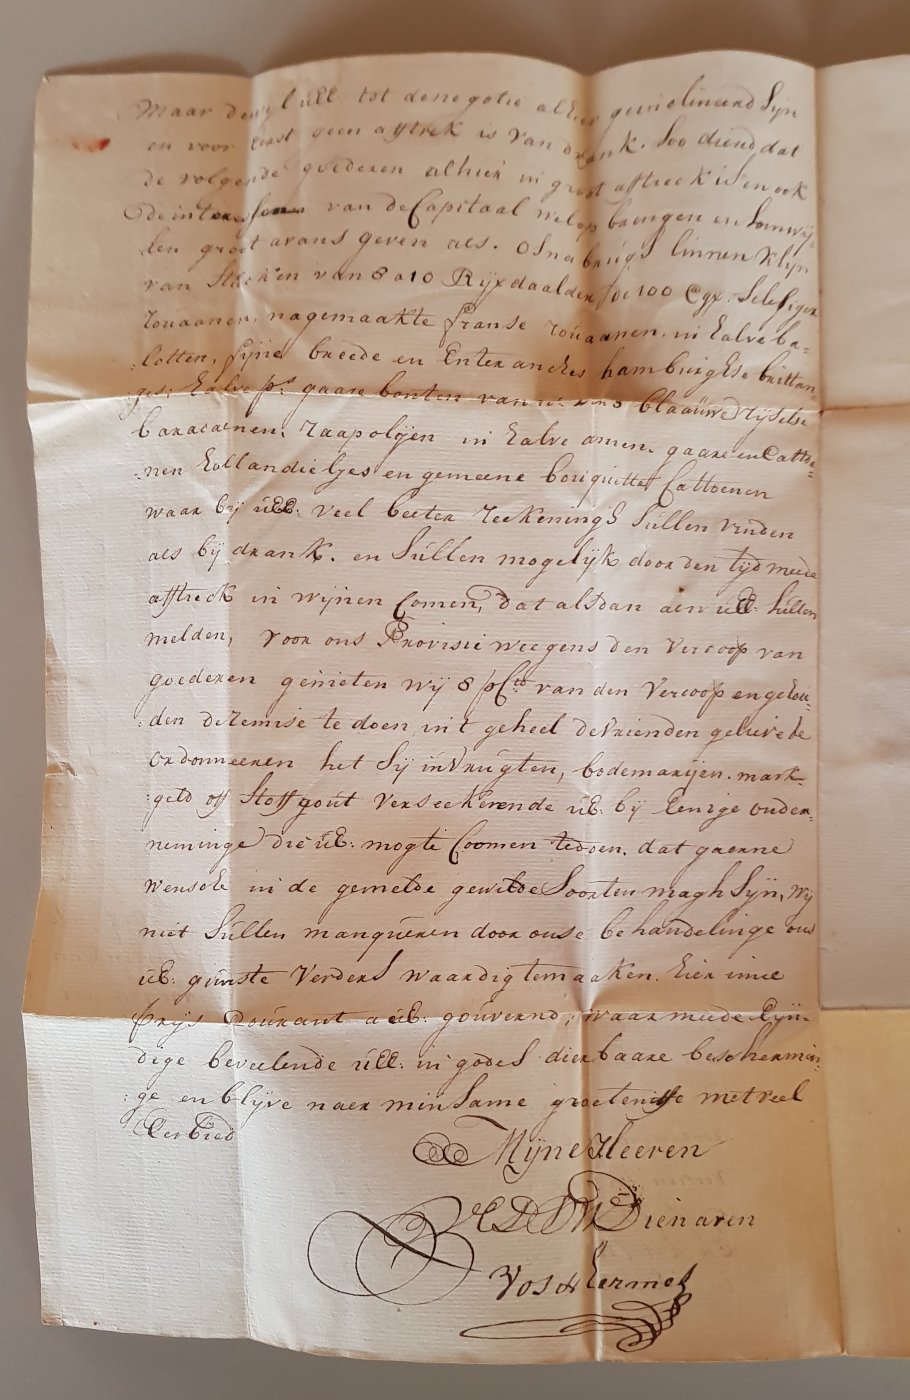 Maar dewyl UEE. tot de negotie alhier geinclineerd Syn
en voor eerst geen afftrek is van drank. Soo diend dat
de volgende goederen alhier in groot afftreck is en ook
de interessen van de Capitaal wel op brengen en Somwij-
len groot avans geven als. Osnabrugs linnen klyn
van Stucken van 8 a 10 Ryxdaalder de 100 Silesiger
rouaanen, nagemaakte franse rouaanen in halve ba=
:lotten, fijne breede en Enter anckes hamburgkse brittan-
ges, halve ps. gaare bonten van blaauwe rijselse
baracaenen, raapolijen in halve amen, gaare en Cattoe=
:nen hollandietjes en gemeene boriquettes Cattoenen
waar bij UEE. veel beeter reekening's Sullen vinden
als bij drank. en Sullen mogelijk door den tijd meede
afftreck in wijnen Comen, dat alsdan aen UEE. Sullen
melden, voor ons Provisie weegens den Vercoop van
goederen genieten wij 8 pCto van den Vercoop en gehou=
:den de remise te doen in't geheel de vrienden gelieve te
ordonneeren het Sij in vrugten, bodemarijen. mark-
:geld off Stoffgout verseekerende UE. bij Eenige onder=
neminge die UE: mogte Coomen te doen. dat gaerne
wensche in de gemelde gewilde Soorten magh Sijn, wij
niet Sullen manqueren door onse behandelinge ons
UE. gunste verders waardig te maaken. hier inne
Prijs Courant a UE. gouverno, waar meede Eyn-
dige beveelende UEE. in godes dierbaare beschermin=
:ge en blijve naer minsame groetenisse met veel
Eerbied
Mijne Heeren
UE D W Dienaren
Vos & Hermes